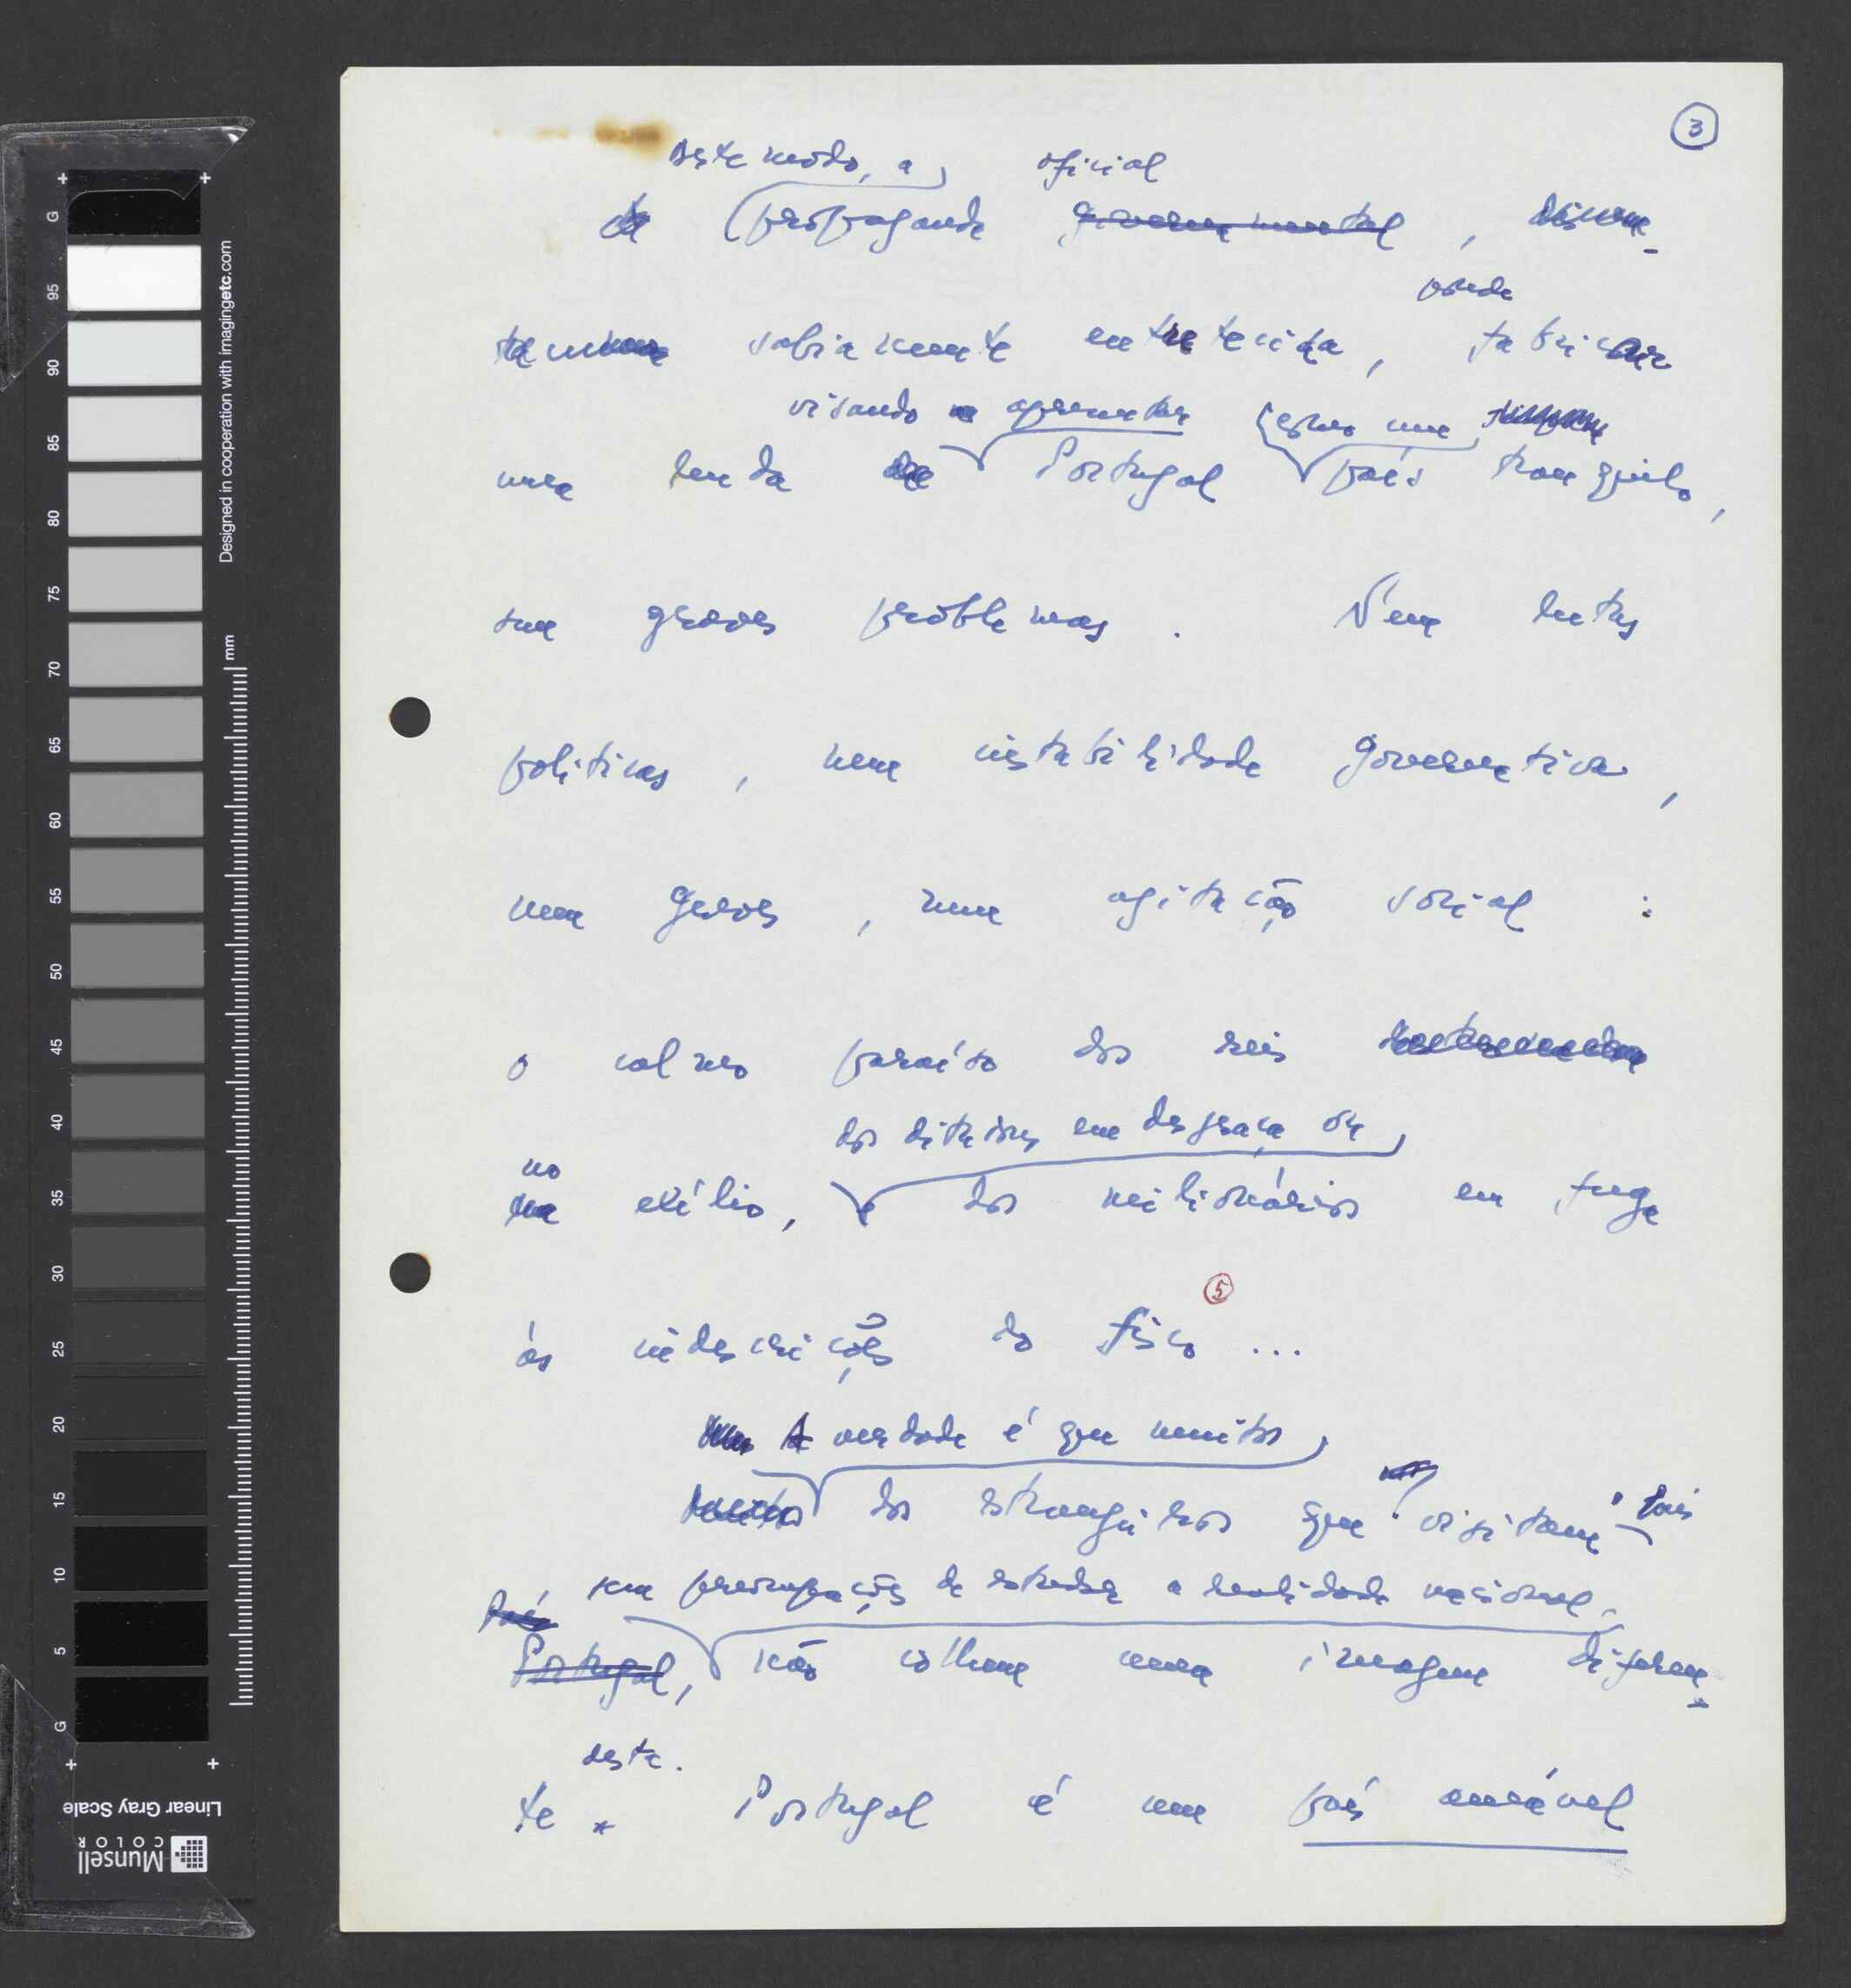 3
Deste modo, a oficial
A propaganda governamental, discre-
pôde
tamente sabiamente entretecida, fabricar
visando apresentar como um
uma lenda de Portugal país tranquilo,
sem graves problemas. Nem lutas
políticas, nem instabilidade governativa,
nem greves, nem agitação social:
o calmo paraíso dos reis
dos ditadores em desgraça ou
no
exílio, e dos milionários em fuga
5
às indiscrições do fisco...
Mas A verdade é que muitos
Muitos dos estrangeiros que visitam o País
País sem preocupações de estudar a realidade nacional,
Portugal, não colhem uma imagem diferen-
desta.
te Portugal é um país amável
G
95
90
85
80
75
70
65
60
55
50
45
40
35
30
25
20
15
10
5
G
mm
Designed in cooperation with imagingetc.com
Linear Gray Scale
Munsell
COLOR